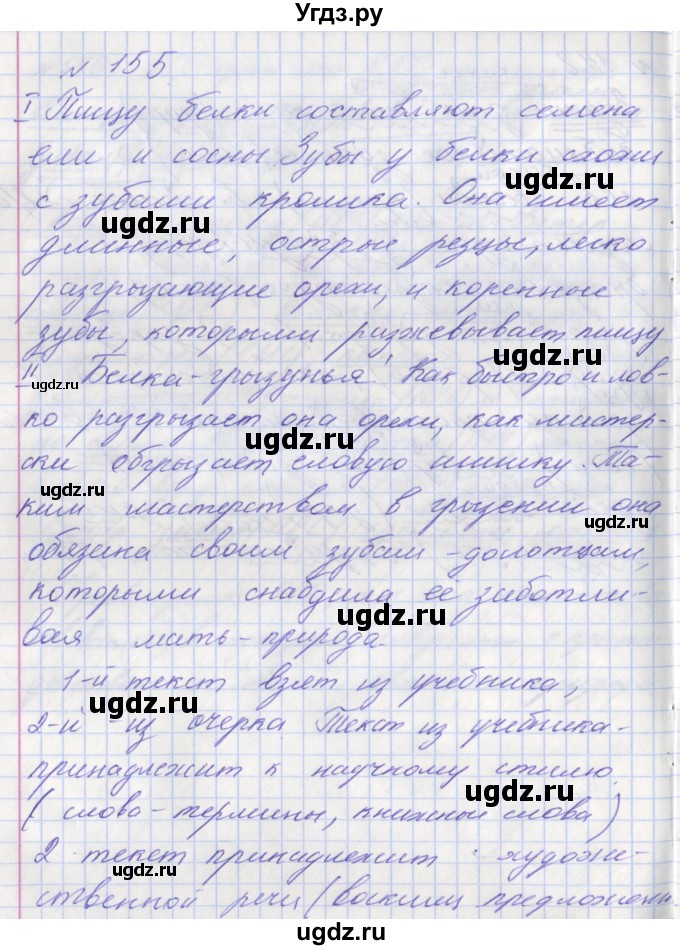 Угдз.ру
№ 155
I Пищу белки составляют семена
ели и сосны. Зубы у белки схожи
с зубами кролика. Она имеет
длинные, острые резцы, легко
разгрызающие орехи, и коренные
зубы, которыми разжевывает пищу
II Белка-грызунья. Как быстро и лов-
ко разгрызает она орехи, как мастер-
ски обгрызает еловую шишку. Та-
ким мастерством в грызении она
обязана своим зубам-долотцам,
которыми снабдила ее заботли-
вая мать-природа.
1-й текст взят из учебника,
2-й - из очерка Текст из учебника-
принадлежит к научному стилю.
(слова-термины, книжные слова)
2 текст принадлежит художе-
ственной речи (восклиц предложени
ugdz.ru
ugdz.ru
ugdz.ru
ugdz.ru
ugdz.ru
ugdz.ru
ugdz.ru
ugdz.ru
ugdz.ru
ugdz.ru
ugdz.ru
ugdz.ru
ugdz.ru
ugdz.ru